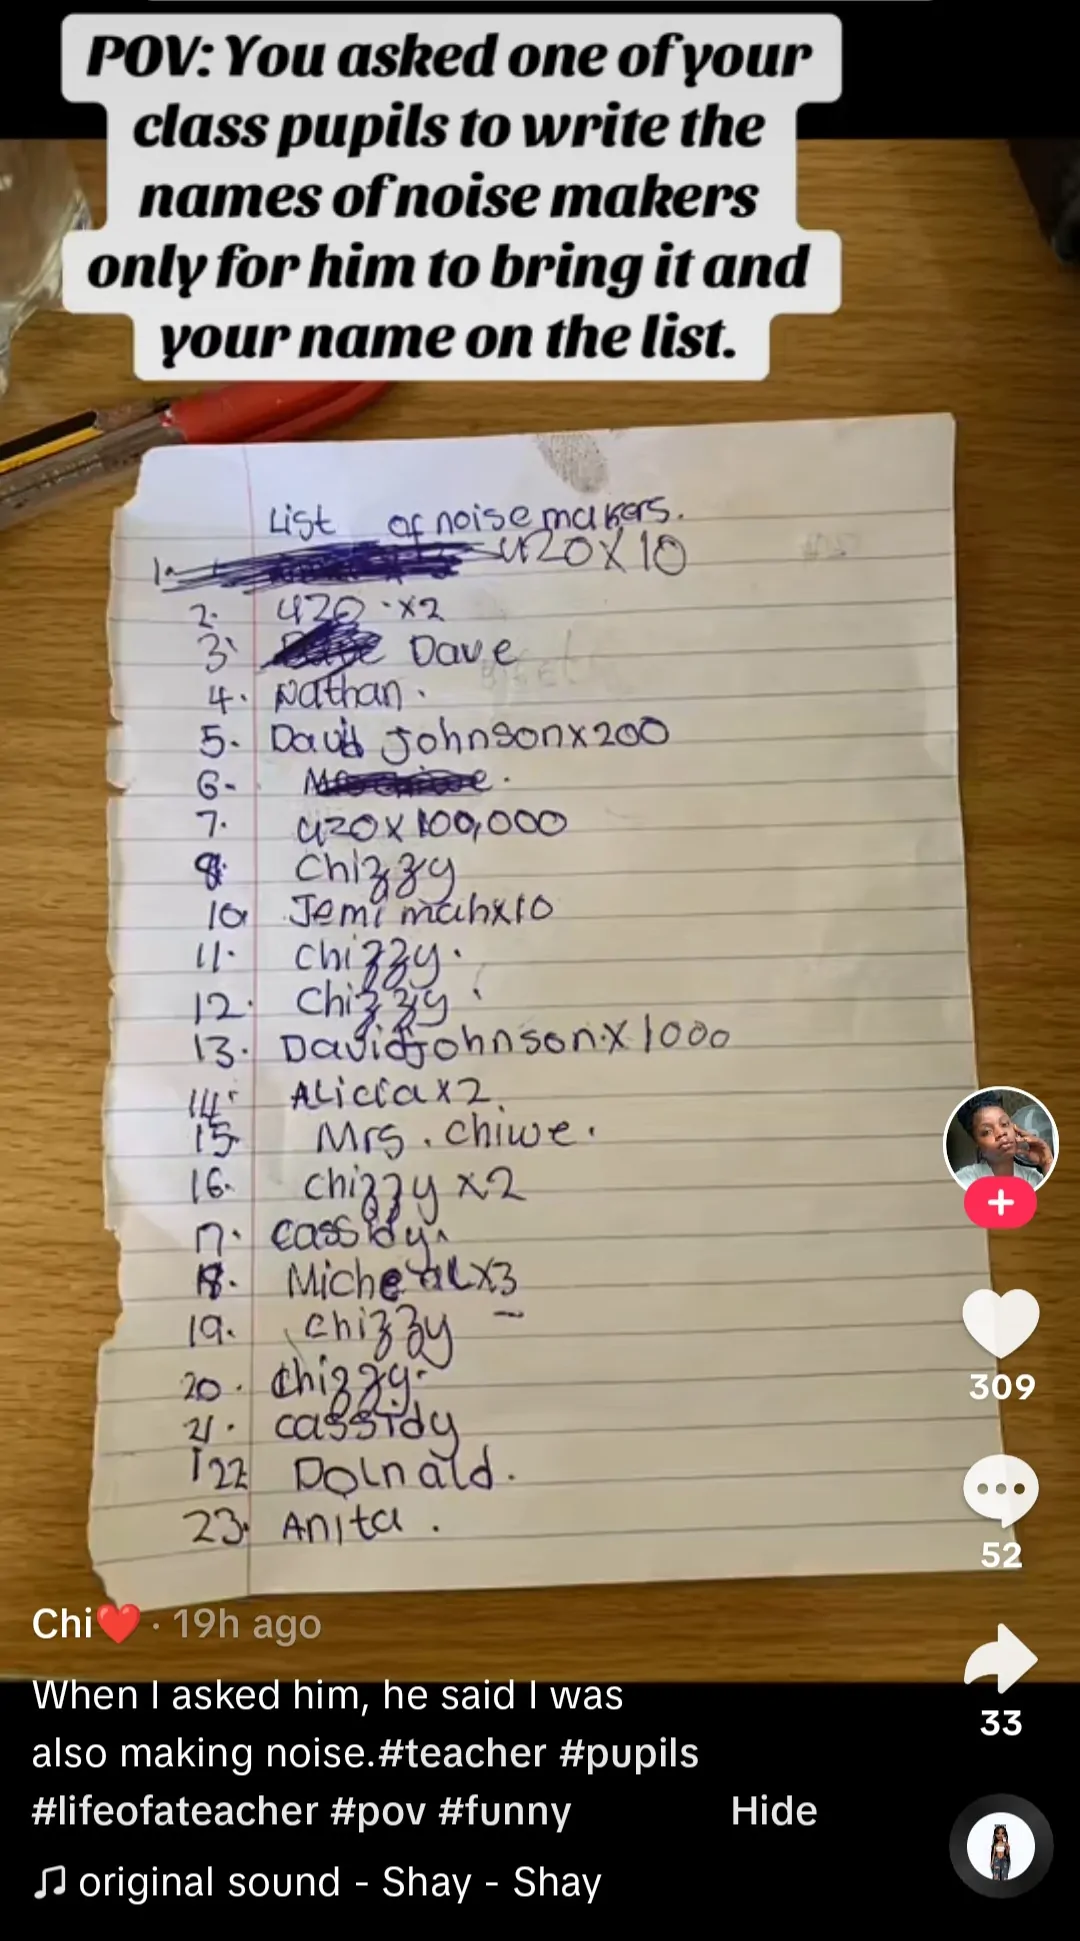 POV: You asked one of your
class pupils to write the
names of noise makers
only for him to bring it and
your name on the list.
List of noise makers.
1. 420 X 10
2. 420 . x2
3. Dave
4. Nathan .
5. David Johnson x 200
6-
7. 420 x 100,000
8. Chizzy
10. Jemimah x 10
11. Chizzy.
12. Chizzy
13. David Johnson. X 1000
14. Alicia x 2
15. Mrs. Chiwe.
16. Chizzy x2
17. Cassidy.
18. Micheal x3
19. Chizzy
20. Chizzy.
21. Cassidy
22 Dolnald.
23. Anita .
Chi❤️ · 19h ago
When I asked him, he said I was
also making noise.#teacher #pupils
#lifeofateacher #pov #funny Hide
♫ original sound - Shay - Shay
309
52
33